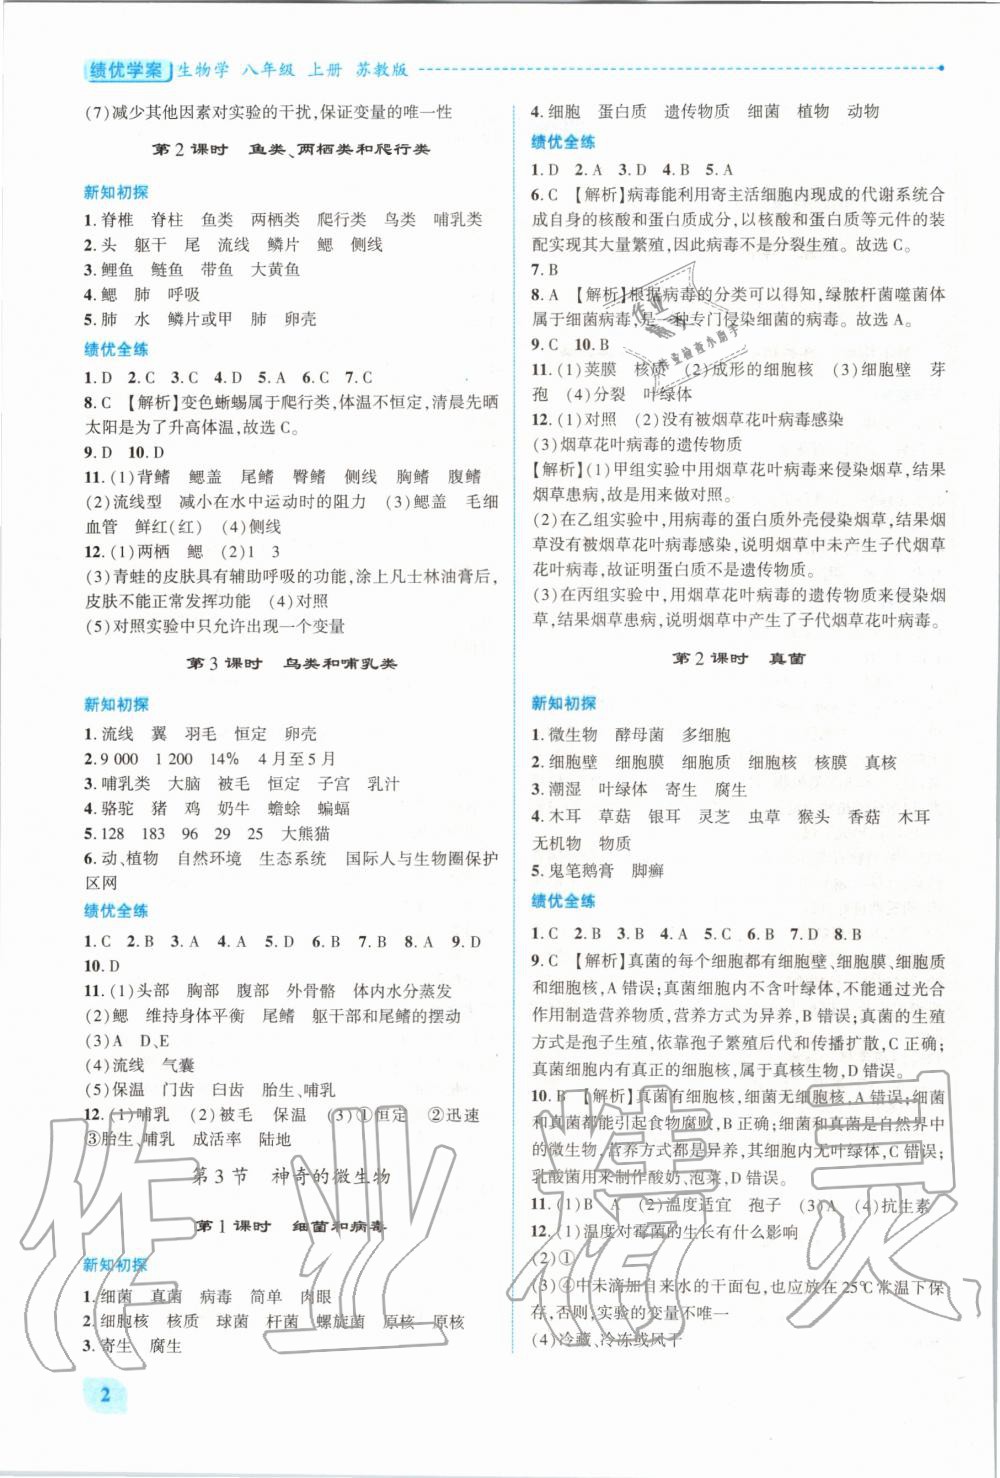 绩优学案 生物学 八年级 上册 苏教版
(7)减少其他因素对实验的干扰,保证变量的唯一性
第2课时 鱼类、两栖类和爬行类
新知初探
1.脊椎 脊柱 鱼类 两栖类 爬行类 鸟类 哺乳类
2.头 躯干 尾 流线 鳞片 鳃 侧线
3.鲤鱼 鲢鱼 带鱼 大黄鱼
4.鳃 肺 呼吸
5.肺 水 鳞片或甲 肺 卵壳
绩优全练
1.D 2.C 3.C 4.D 5.A 6.C 7.C
8.C 【解析】变色蜥蜴属于爬行类,体温不恒定,清晨先晒
太阳是为了升高体温,故选C。
9.D 10.D
11.(1)背鳍 鳃盖 尾鳍 臀鳍 侧线 胸鳍 腹鳍
(2)流线型 减小在水中运动时的阻力 (3)鳃盖 毛细
血管 鲜红(红) (4)侧线
12.(1)两栖 鳃 (2)1 3
(3)青蛙的皮肤具有辅助呼吸的功能,涂上凡士林油膏后,
皮肤不能正常发挥功能 (4)对照
(5)对照实验中只允许出现一个变量
第3课时 鸟类和哺乳类
新知初探
1.流线 翼 羽毛 恒定 卵壳
2.9 000 1 200 14% 4月至5月
3.哺乳类 大脑 被毛 恒定 子宫 乳汁
4.骆驼 猪 鸡 奶牛 蟾蜍 蝙蝠
5.128 183 96 29 25 大熊猫
6.动、植物 自然环境 生态系统 国际人与生物圈保护
区网
绩优全练
1.C 2.B 3.A 4.A 5.D 6.B 7.B 8.A 9.D
10.D
11.(1)头部 胸部 腹部 外骨骼 体内水分蒸发
(2)鳃 维持身体平衡 尾鳍 躯干部和尾鳍的摆动
(3)A D、E
(4)流线 气囊
(5)保温 门齿 臼齿 胎生、哺乳
12.(1)哺乳 (2)被毛 保温 (3)①恒定 ②迅速
③胎生、哺乳 成活率 陆地
第3节 神奇的微生物
第1课时 细菌和病毒
新知初探
1.细菌 真菌 病毒 简单 肉眼
2.细胞核 核质 球菌 杆菌 螺旋菌 原核 原核
3.寄生 腐生
2
4.细胞 蛋白质 遗传物质 细菌 植物 动物
绩优全练
1.D 2.A 3.D 4.B 5.A
6.C 【解析】病毒能利用寄主活细胞内现成的代谢系统合
成自身的核酸和蛋白质成分,以核酸和蛋白质等元件的装
配实现其大量繁殖,因此病毒不是分裂生殖。故选C。
7.B
8.A 【解析】根据病毒的分类可以得知,绿脓杆菌噬菌体
属于细菌病毒,是一种专门侵染细菌的病毒。故选A。
9.C 10.B
11.(1)荚膜 核质 (2)成形的细胞核 (3)细胞壁 芽
孢 (4)分裂 叶绿体
12.(1)对照 (2)没有被烟草花叶病毒感染
(3)烟草花叶病毒的遗传物质
【解析】(1)甲组实验中用烟草花叶病毒来侵染烟草,结果
烟草患病,故是用来做对照。
(2)在乙组实验中,用病毒的蛋白质外壳侵染烟草,结果烟
草没有受到烟草花叶病毒感染,说明烟草中未产生子代烟草
花叶病毒,故证明蛋白质不是遗传物质。
(3)在丙组实验中,用烟草花叶病毒的遗传物质来侵染烟
草,结果烟草患病,说明烟草中产生了子代烟草花叶病毒。
第2课时 真菌
新知初探
1.微生物 酵母菌 多细胞
2.细胞壁 细胞膜 细胞质 细胞核 核膜 真核
3.潮湿 叶绿体 寄生 腐生
4.木耳 草菇 银耳 灵芝 虫草 猴头 香菇 木耳
无机物 物质
5.鬼笔鹅膏 脚癣
绩优全练
1.C 2.B 3.B 4.A 5.C 6.B 7.D 8.B
9.C 【解析】真菌的每个细胞都有细胞壁、细胞膜、细胞质
和细胞核,A错误;真菌细胞内不含叶绿体,不能通过光合
作用制造营养物质,营养方式为异养,B错误;真菌的生殖
方式是孢子生殖,依靠孢子繁殖后代和传播扩散,C正确;
真菌细胞内有真正的细胞核,属于真核生物,D错误。
10.B 【解析】真菌有细胞核,细菌无细胞核,A错误;细菌
和真菌都能引起食物腐败,B正确;细菌和真菌是自然界中
的微生物,营养方式有异养,其细胞内无叶绿体,C错误;
乳酸菌用来制作酸奶、泡菜,D错误。
11.(1)B A (2)温度适宜 孢子 (3)A (4)抗生素
12.(1)温度对霉菌的生长有什么影响
(2)①
(3)④中未滴加自来水的干面包,也应放在25℃常温下保
存,否则,实验的变量不唯一
(4)冷藏、冷冻或风干
作业
作业检查小助手
作业精灵